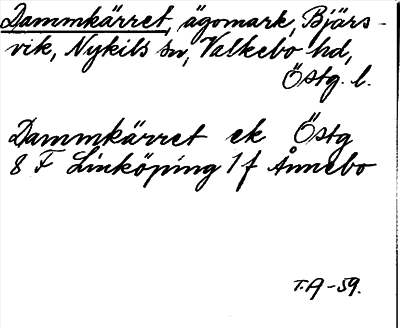 Dammkärret, ägomark, Bjärs-
vik, Nykils sn, Valkebo hd,
Östg. l.
Dammkärret ek Östg
8 F Linköping 1 f Ånnebo
T.A-59.